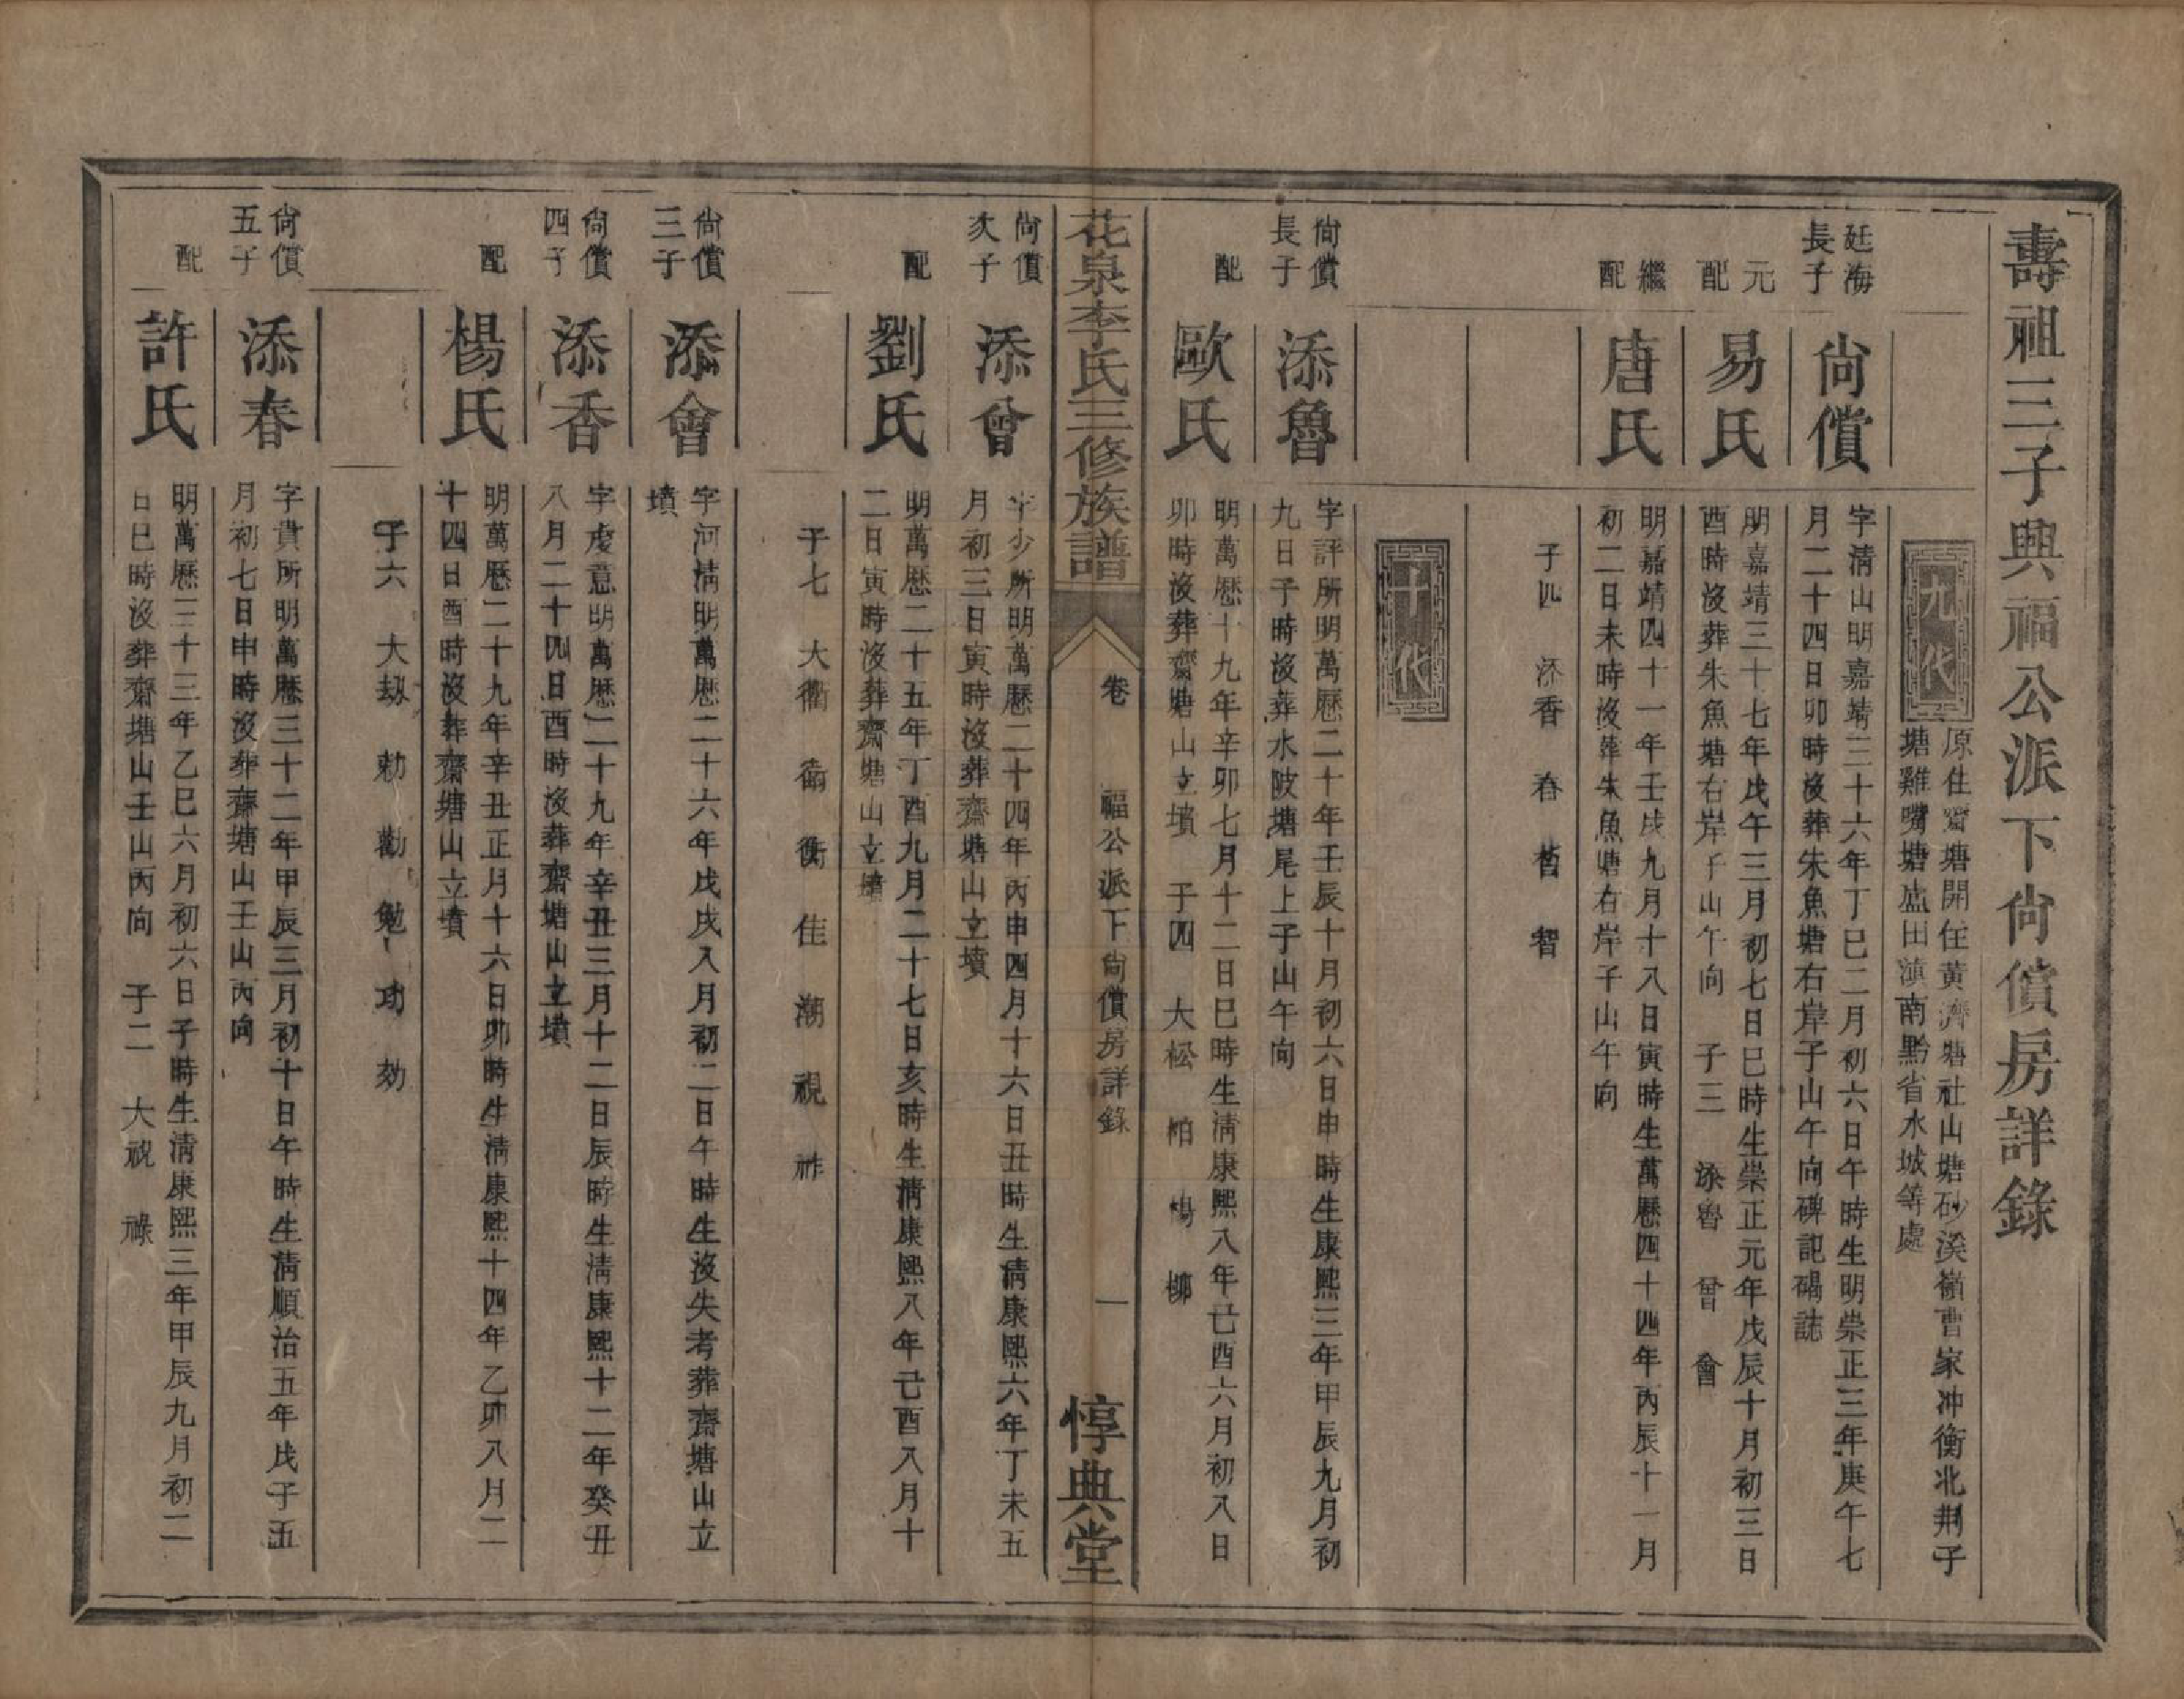 壽祖三子興福公派下尙償房詳錄
九代
原住齋塘開住黃濟塘社山塘砂溪嶺曹家冲衡北荆子
塘雞嘴塘盛田滇南黔省水城等處
廷海長子
尙償
字淸山明嘉靖三十六年丁巳二月初六日午時生明崇正三年庚午七
月二十四日卯時沒葬朱魚塘右岸子山午向碑記碣誌
元配
易氏
明嘉靖三十七年戊午三月初七日巳時生崇正元年戊辰十月初三日
酉時沒葬朱魚塘右岸子山午向 子三 添魯 曾 會
繼配
唐氏
明嘉靖四十一年壬戌九月十八日寅時生萬曆四十四年丙辰十一月
初二日未時沒葬朱魚塘右岸子山午向
子四 添香 春 㫮 智
十代
尙償長子
添魯
字評所明萬曆二十年壬辰十月初六日申時生康熙三年甲辰九月初
九日子時沒葬水陂塘尾上子山午向
配
歐氏
明萬曆十九年辛卯七月十二日巳時生淸康熙八年己酉六月初八日
卯時沒葬齋塘山立墳 子四 大松 柏 楊 柳
花泉李氏三修族譜
卷 福公派下尙償房詳錄
一
惇典堂
尙償次子
添曾
字少所明萬曆二十四年丙申四月十六日丑時生淸康熙六年丁未五
月初三日寅時沒葬齋塘山立墳
配
劉氏
明萬曆二十五年丁酉九月二十七日亥時生淸康熙八年己酉八月十
二日寅時沒葬齋塘山立墳
子七 大衢 衛 衡 佳 潮 視 祚
尙償三子
添會
字河淸明萬曆二十六年戊戌八月初二日午時生沒失考葬齋塘山立
墳
尙償四子
添香
字虔意明萬曆二十九年辛丑三月十二日辰時生淸康熙十二年癸丑
八月二十四日酉時沒葬齋塘山立墳
配
楊氏
明萬曆二十九年辛丑正月十六日卯時生淸康熙十四年乙卯八月二
十四日酉時沒葬齋塘山立墳
子六 大刼 勅 勸 勉 功 効
尙償五子
添春
字貴所明萬曆三十二年甲辰三月初十日午時生淸順治五年戊子五
月初七日申時沒葬齋塘山壬山丙向
配
許氏
明萬曆三十三年乙巳六月初六日子時生淸康熙三年甲辰九月初二
日巳時沒葬齋塘山壬山丙向 子二 大祝 祿